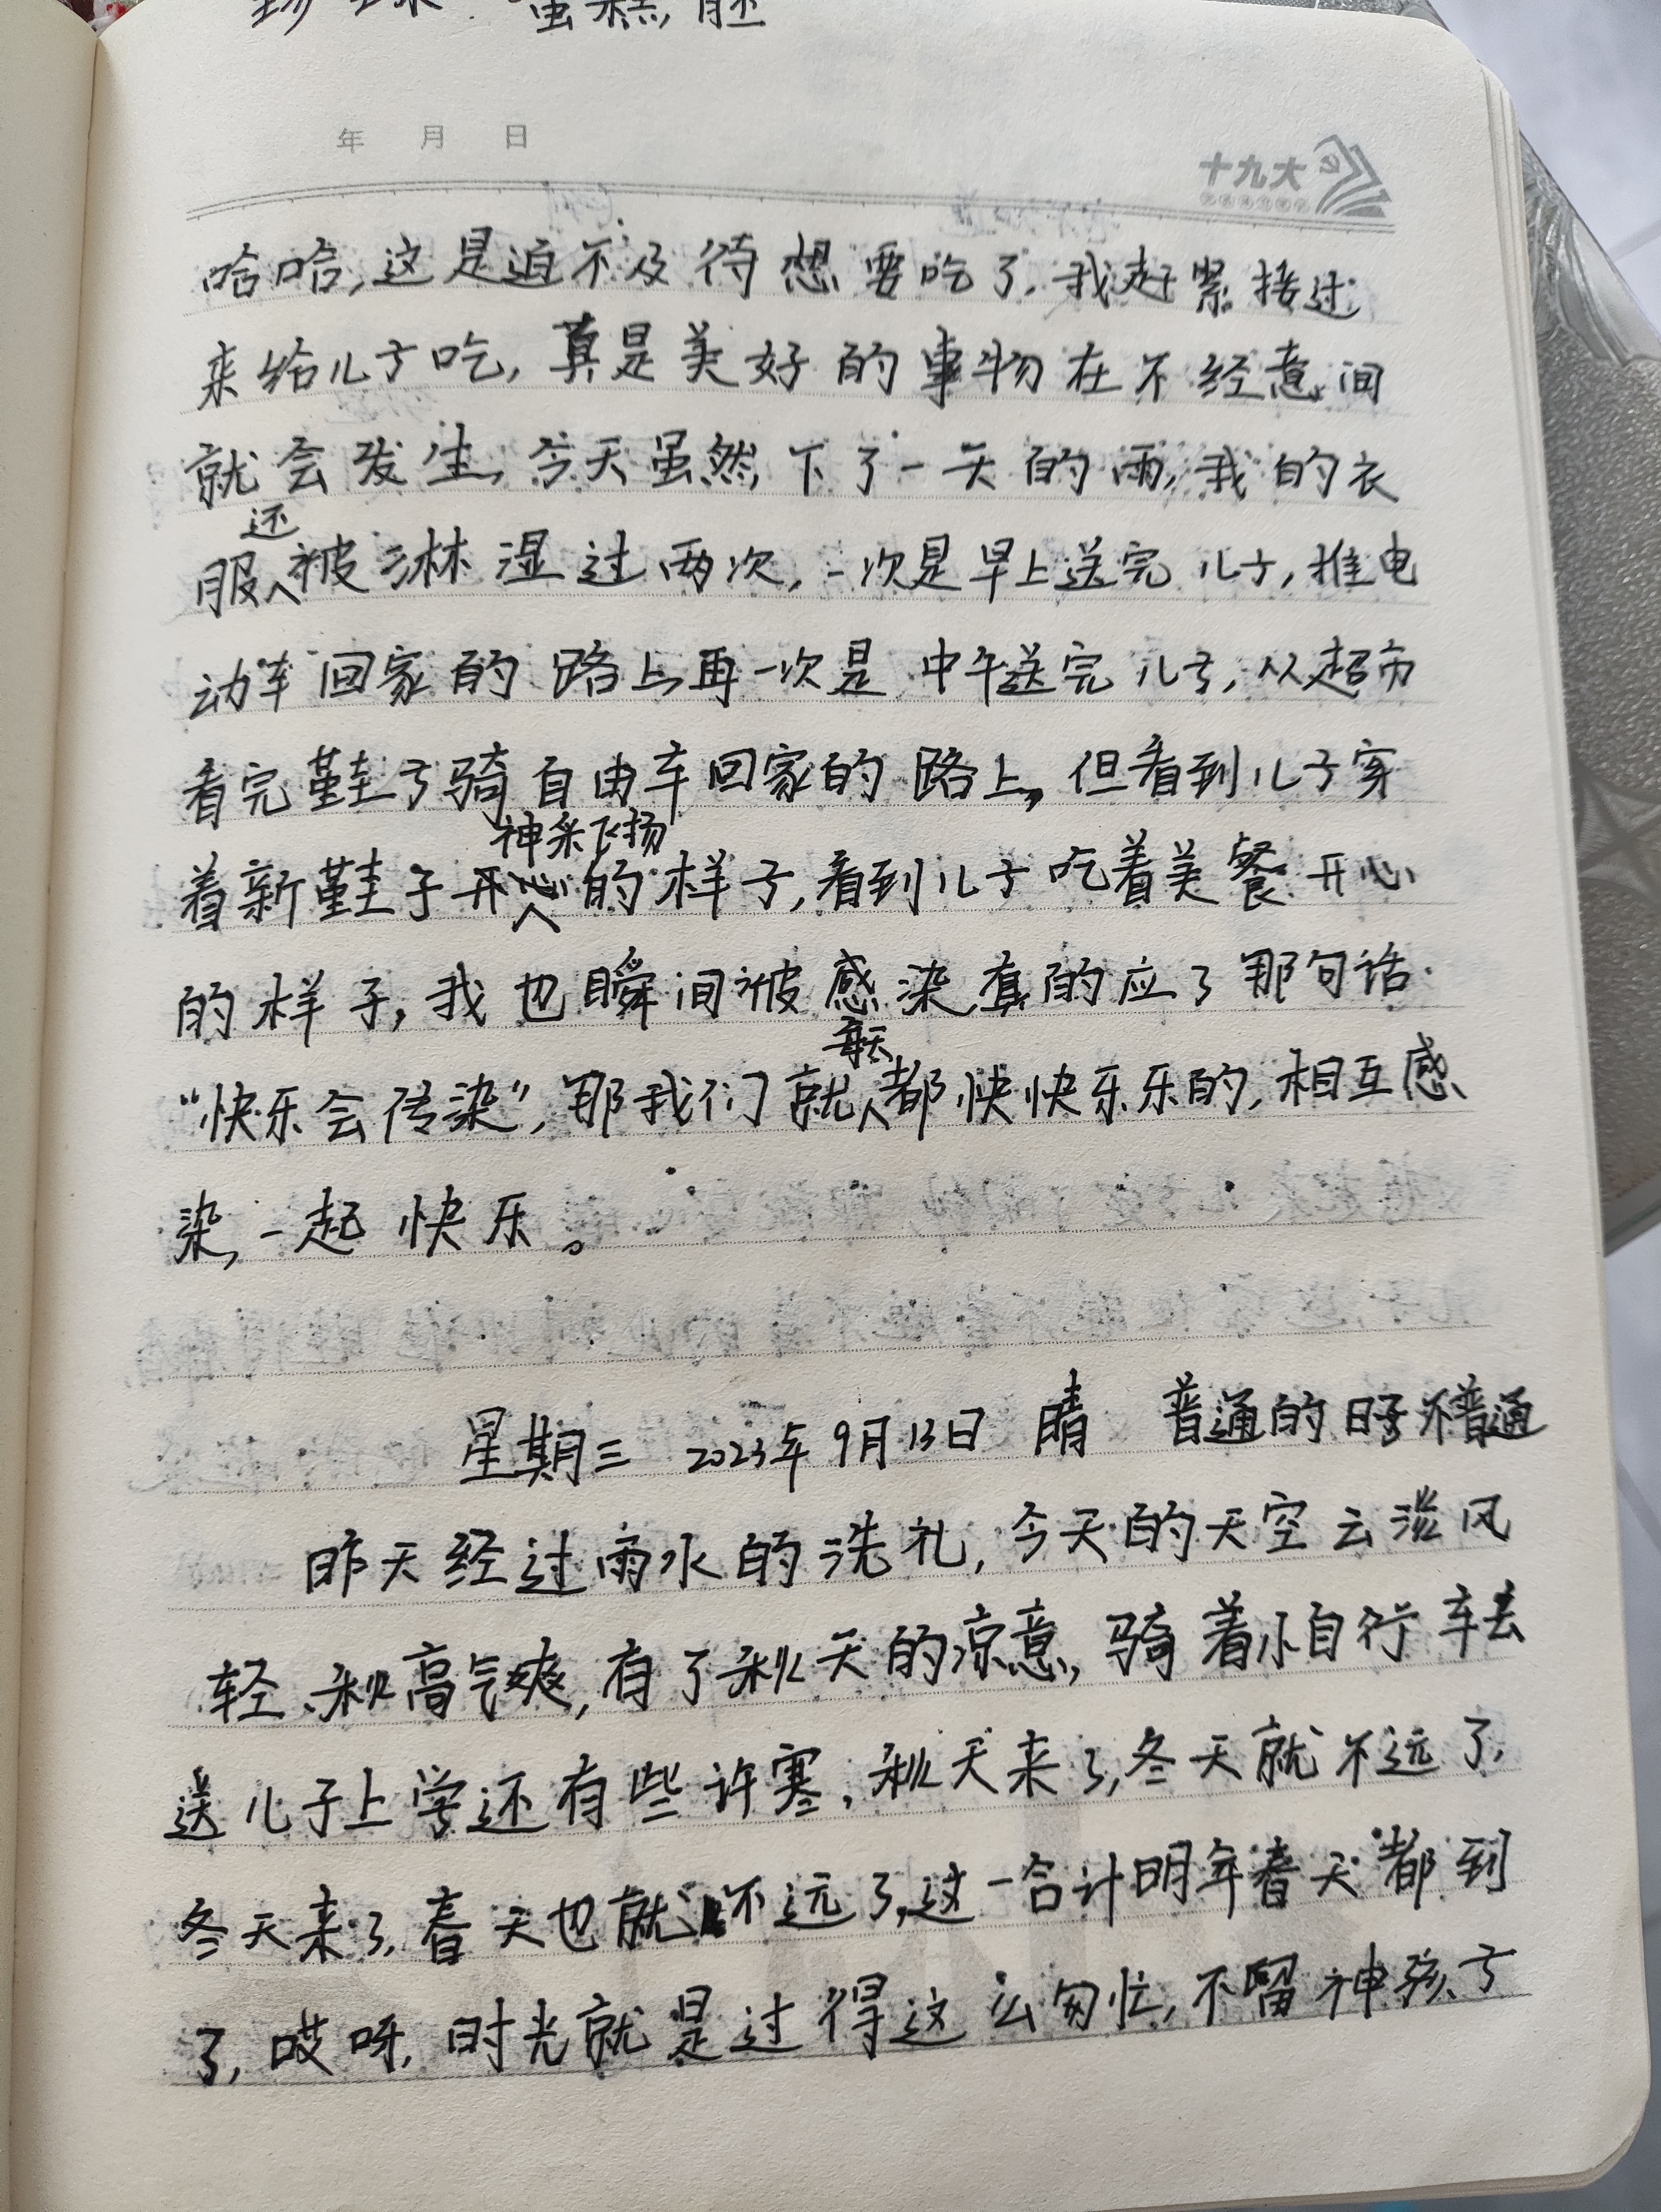 年 月 日
十九大
哈哈,这是迫不及待想要吃了,我赶紧接过
来给儿子吃,真是美好的事物在不经意间
就会发生,今天虽然下了一天的雨,我的衣
服还被淋湿过两次,一次是早上送完儿子,推电
动车回家的路上,再一次是中午送完儿子,从超市
看完鞋子骑自由车回家的路上,但看到儿子穿
神采飞扬
着新鞋子开心的样子,看到儿子吃着美餐开心
的样子,我也瞬间被感染,真的应了那句话
“快乐会传染”,那我们就每天都快快乐乐的,相互感
染,一起快乐。
星期三 2023年9月13日 晴 普通的日子不普通
昨天经过雨水的洗礼,今天的天空云淡风
轻、秋高气爽,有了秋天的凉意,骑着小自行车去
送儿子上学还有些许寒,秋天来了,冬天就不远了,
冬天来了,春天也就不远了,这一合计明年春天都到
了,哎呀,时光就是过得这么匆忙,不留神孩子